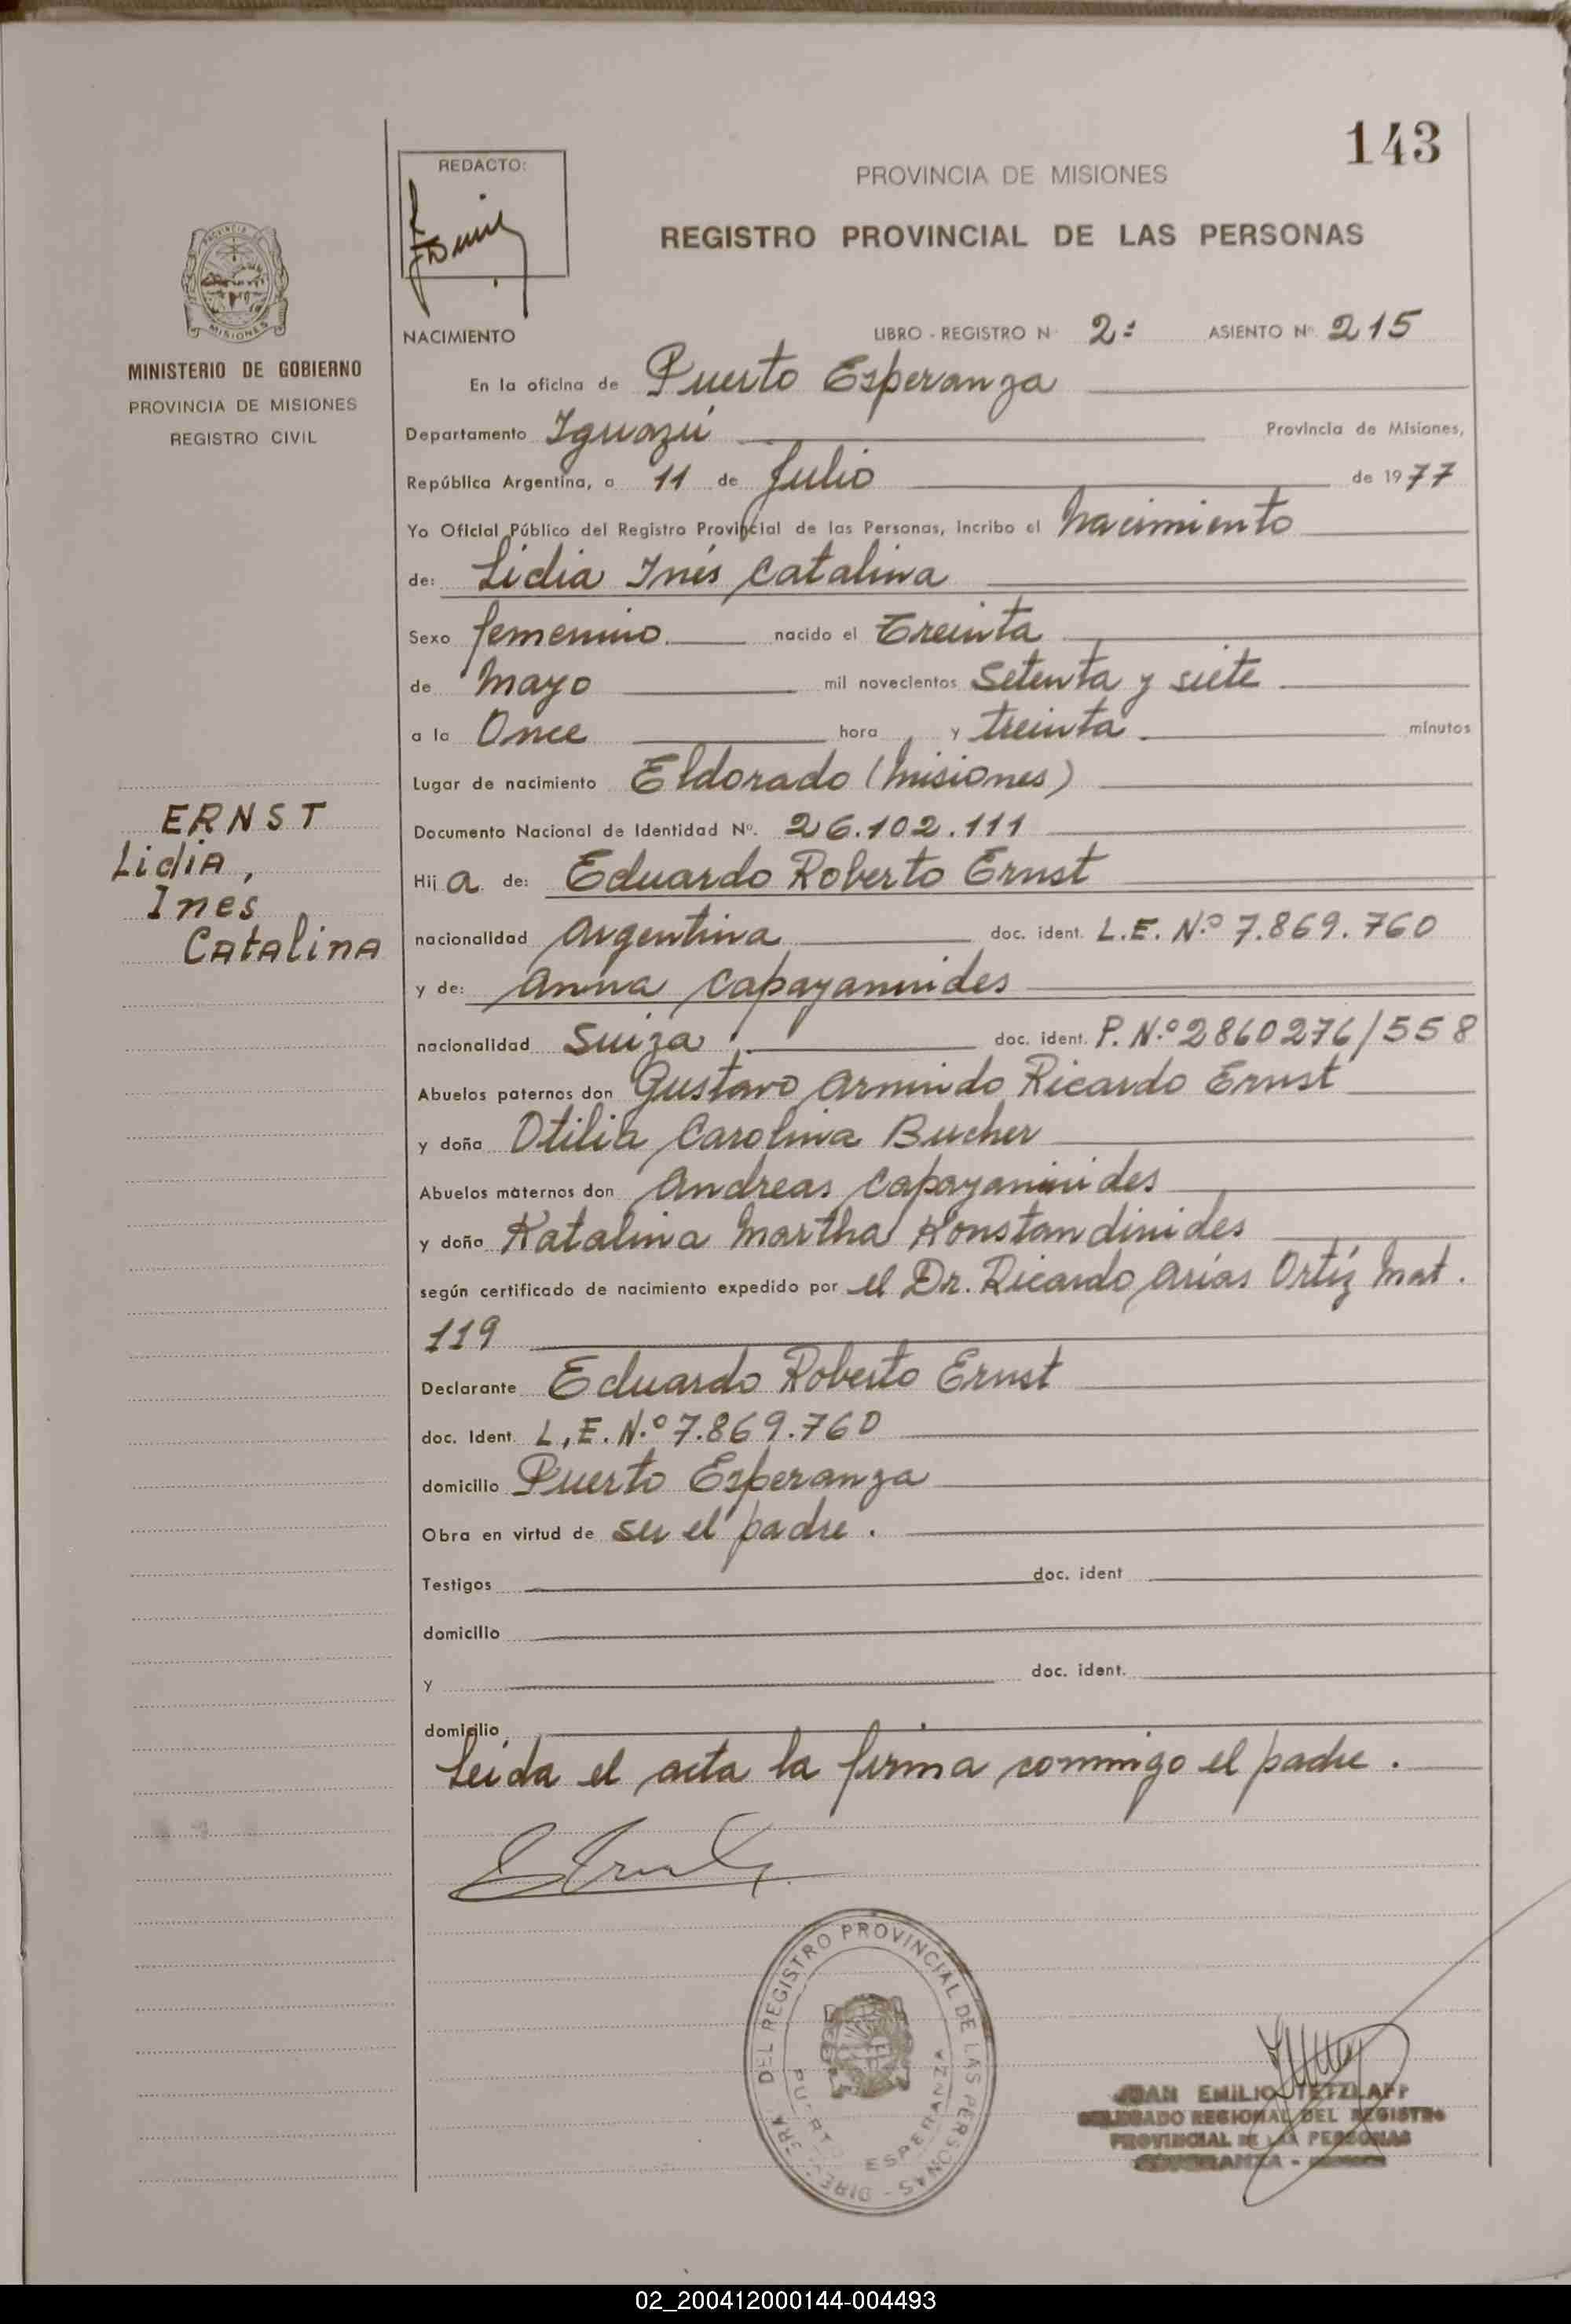 143
REDACTO:
PROVINCIA DE MISIONES
REGISTRO PROVINCIAL DE LAS PERSONAS
MINISTERIO DE GOBIERNO
PROVINCIA DE MISIONES
REGISTRO CIVIL
NACIMIENTO LIBRO - REGISTRO N 2: ASIENTO Nº 215
En la oficina de Puerto Esperanza
Departamento Iguazú Provincia de Misiones,
República Argentina, a 11 de Julio de 1977
Yo Oficial Público del Registro Provincial de las Personas, incribo el nacimiento
de: Lidia Inés Catalina
Sexo femenino nacido el Treinta
de mayo mil novecientos Setenta y siete
a la Once hora y treinta minutos
Lugar de nacimiento Eldorado (misiones)
Documento Nacional de Identidad Nº. 26.102.111
ERNST
Lidia,
Ines
Catalina
Hij a de: Eduardo Roberto Ernst
nacionalidad argentina doc. ident. L.E. N.º 7.869.760
y de: anna capayannides
nacionalidad Suiza doc. ident. P. N.º 2860276/558
Abuelos paternos don Gustavo armindo Ricardo Ernst
y doña Otilia Carolina Bucher
Abuelos maternos don andreas capayannides
y doña Katalina Martha Konstandinides
según certificado de nacimiento expedido por el Dr. Ricardo arias Ortíz Mat.
119
Declarante Eduardo Roberto Ernst
doc. Ident. L.E. N.º 7.869.760
domicilio Puerto Esperanza
Obra en virtud de ser el padre.
Testigos doc. ident
domicilio
y doc. ident.
domicilio
Leída el acta la firma conmigo el padre.
DEL REGISTRO PROVINCIAL DE LAS PERSONAS
PUERTO ESPERANZA
JUAN EMILIO TETZLAFF
DELEGADO REGIONAL DEL REGISTRO
PROVINCIAL DE LAS PERSONAS
02_200412000144-004493